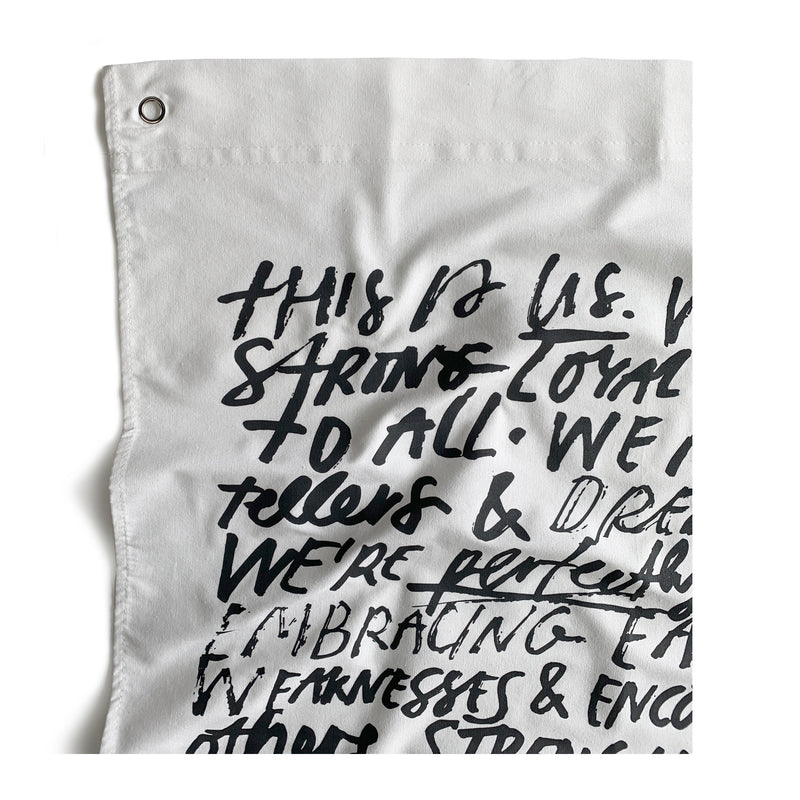 THIS IS US. W
STRONG LOYAL
TO ALL. WE'
tellers & DREA
WE'RE perfectly
EMBRACING EA
WEAKNESSES & ENCO
others STRENG